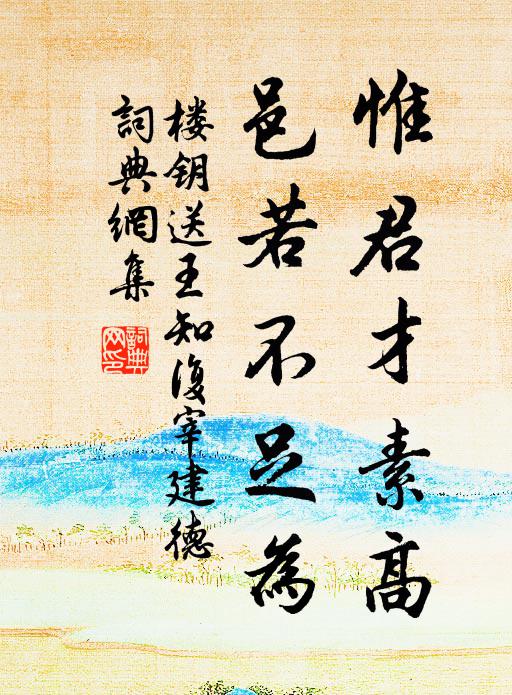 惟君才素高
邑若不足為
楼钥送王知復宰建德
詞典網集
詞典
网印